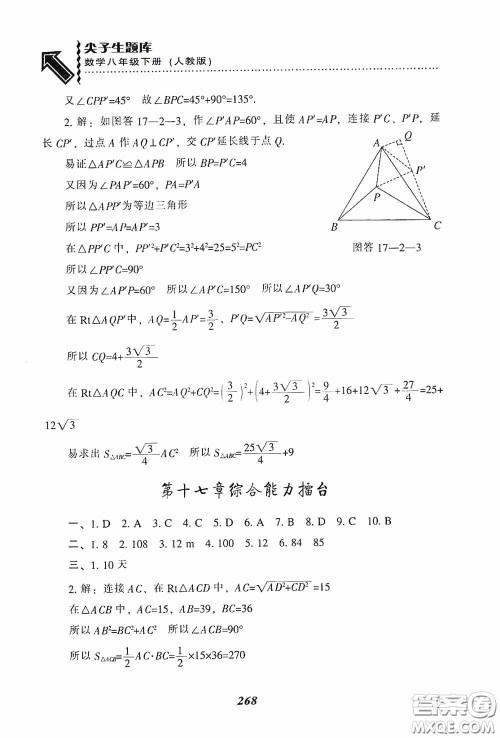 尖子生题库
数学八年级下册（人教版）
又∠CPP′=45°　故∠BPC=45°+90°=135°.
2. 解：如图答 17—2—3，作∠P′AP=60°，且使 AP′=AP，连接 P′C、P′P，延
长 CP′，过点 A 作 AQ⊥CP′，交 CP′延长线于点 Q.
易证△AP′C≌△APB　所以 BP=P′C=4
又因为∠PAP′=60°，PA=P′A
所以△APP′为等边三角形
所以 PP′=AP=AP′=3
在△PP′C 中，PP′²+P′C²=3²+4²=25=5²=PC²
所以∠PP′C=90°
又因为∠AP′P=60°　所以∠AP′C=150°　所以∠AP′Q=30°
A
Q
P′
P
B
C
图答 17—2—3
在 Rt△AQP′中，AQ=1/2 AP′=3/2，P′Q=√(AP′²−AQ²)=3√3/2
所以 CQ=4+3√3/2
在 Rt△AQC 中，AC²=AQ²+CQ²=(3/2)²+(4+3√3/2)²=9/4+16+12√3+27/4=25+
12√3
易求出 S△ABC=√3/4 AC²　所以 S△ABC=25√3/4+9
第十七章综合能力擂台
一、1. D　2. A　3. C　4. C　5. D　6. D　7. C　8. D　9. C　10. B
二、1. 8　2. 108　3. 12 m　4. 100　5. 12　6. 84　85
三、1. 10 天
2. 解：连接 AC，在 Rt△ACD 中，AC=√(AD²+CD²)=15
在△ACB 中，AC=15，AB=39，BC=36
所以 AB²=BC²+AC²　所以∠ACB=90°
所以 S△ACB=1/2 AC·BC=1/2×15×36=270
268
答案圈
MXQE.COM